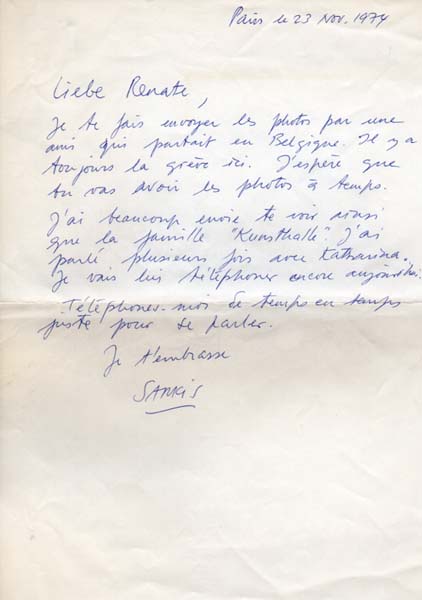 Paris le 23 Nov. 1974
Liebe Renate,
Je te fais envoyer les photos par une
amis qui partait en Belgique. Il y a
toujours la grève ici. J'espère que
tu vas avoir les photos à temps.
J'ai beaucoup envie te voir ainsi
que la famille "Kunsthalle". J'ai
parlé plusieurs fois avec Katharina.
Je vais lui téléphoner encore aujourd'hui.
Téléphones-moi de temps en temps
juste pour se parler.
Je t'embrasse
SARKIS